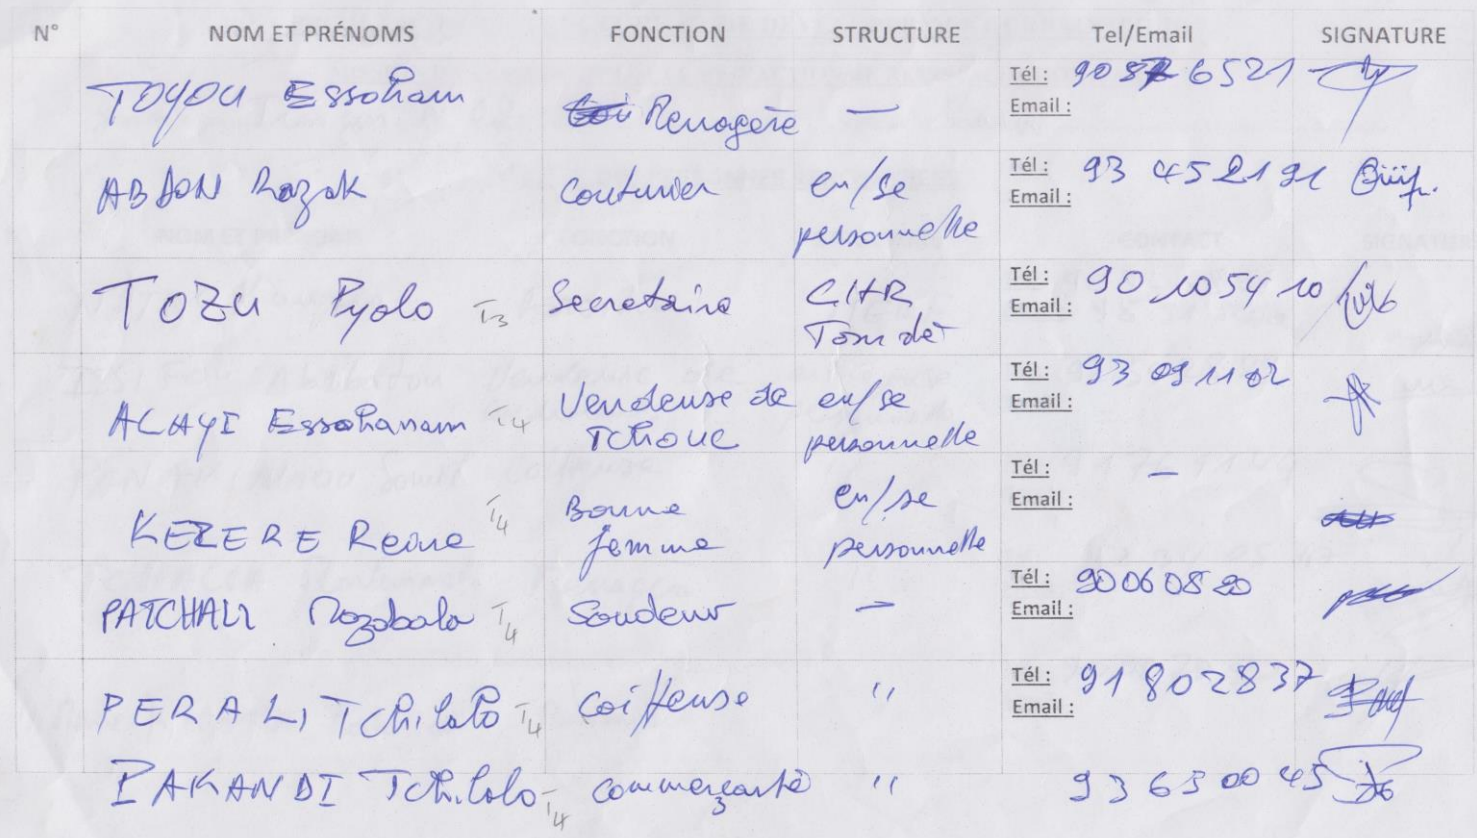 N° NOM ET PRÉNOMS FONCTION STRUCTURE Tel/Email SIGNATURE
TOYOU Essoham Menagère — Tél : 90 52 6521
Email :
ABDON Razak Couturier en/se personnelle Tél : 93 45 21 91
Email :
TOZU Pyalo T3 Secretaire CHR Tomdè Tél : 90 10 54 10
Email :
ALAYI Essohanam T4 Vendeuse de Tchouc en/se personnelle Tél : 93 09 11 02
Email :
KEZERE Reine T4 Bonne femme en/se personnelle Tél : —
Email :
PATCHALI Mazabalo T4 Soudeur — Tél : 90060820
Email :
PERALI Tchilalo T4 Coiffeuse " Tél : 91802837
Email :
PAKANDI Tchilalo T4 Commerçante " 93630045